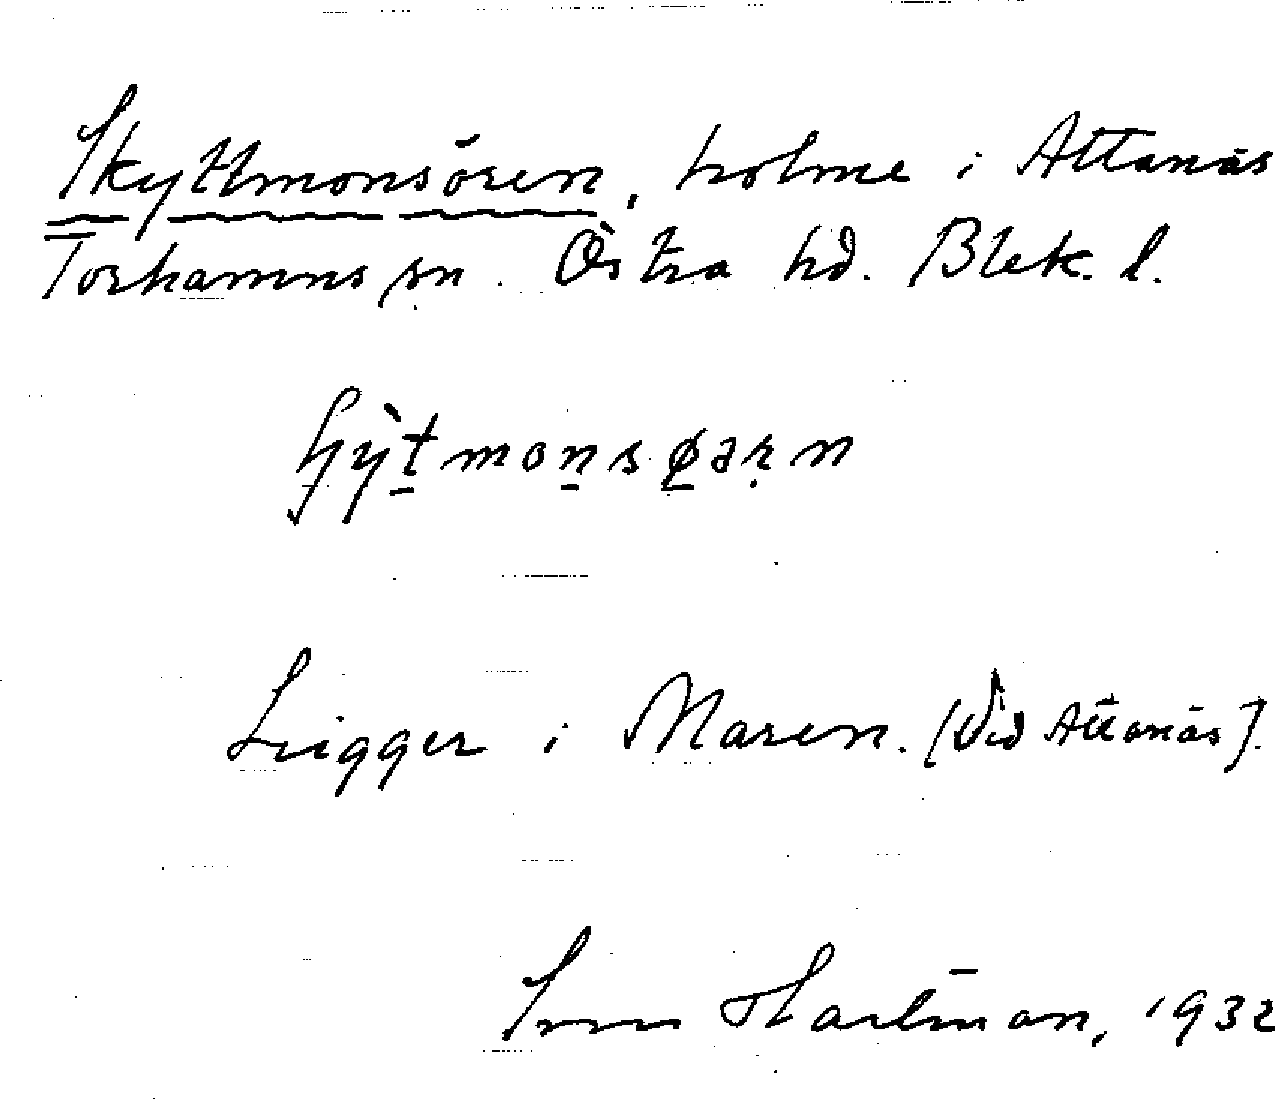 Skyttmonsören, holme i Attanäs
Torhamns sn. Östra hd. Blek. l.
Ligger i Maren. (Vid Attanäs).
Sven Hartman, 1932